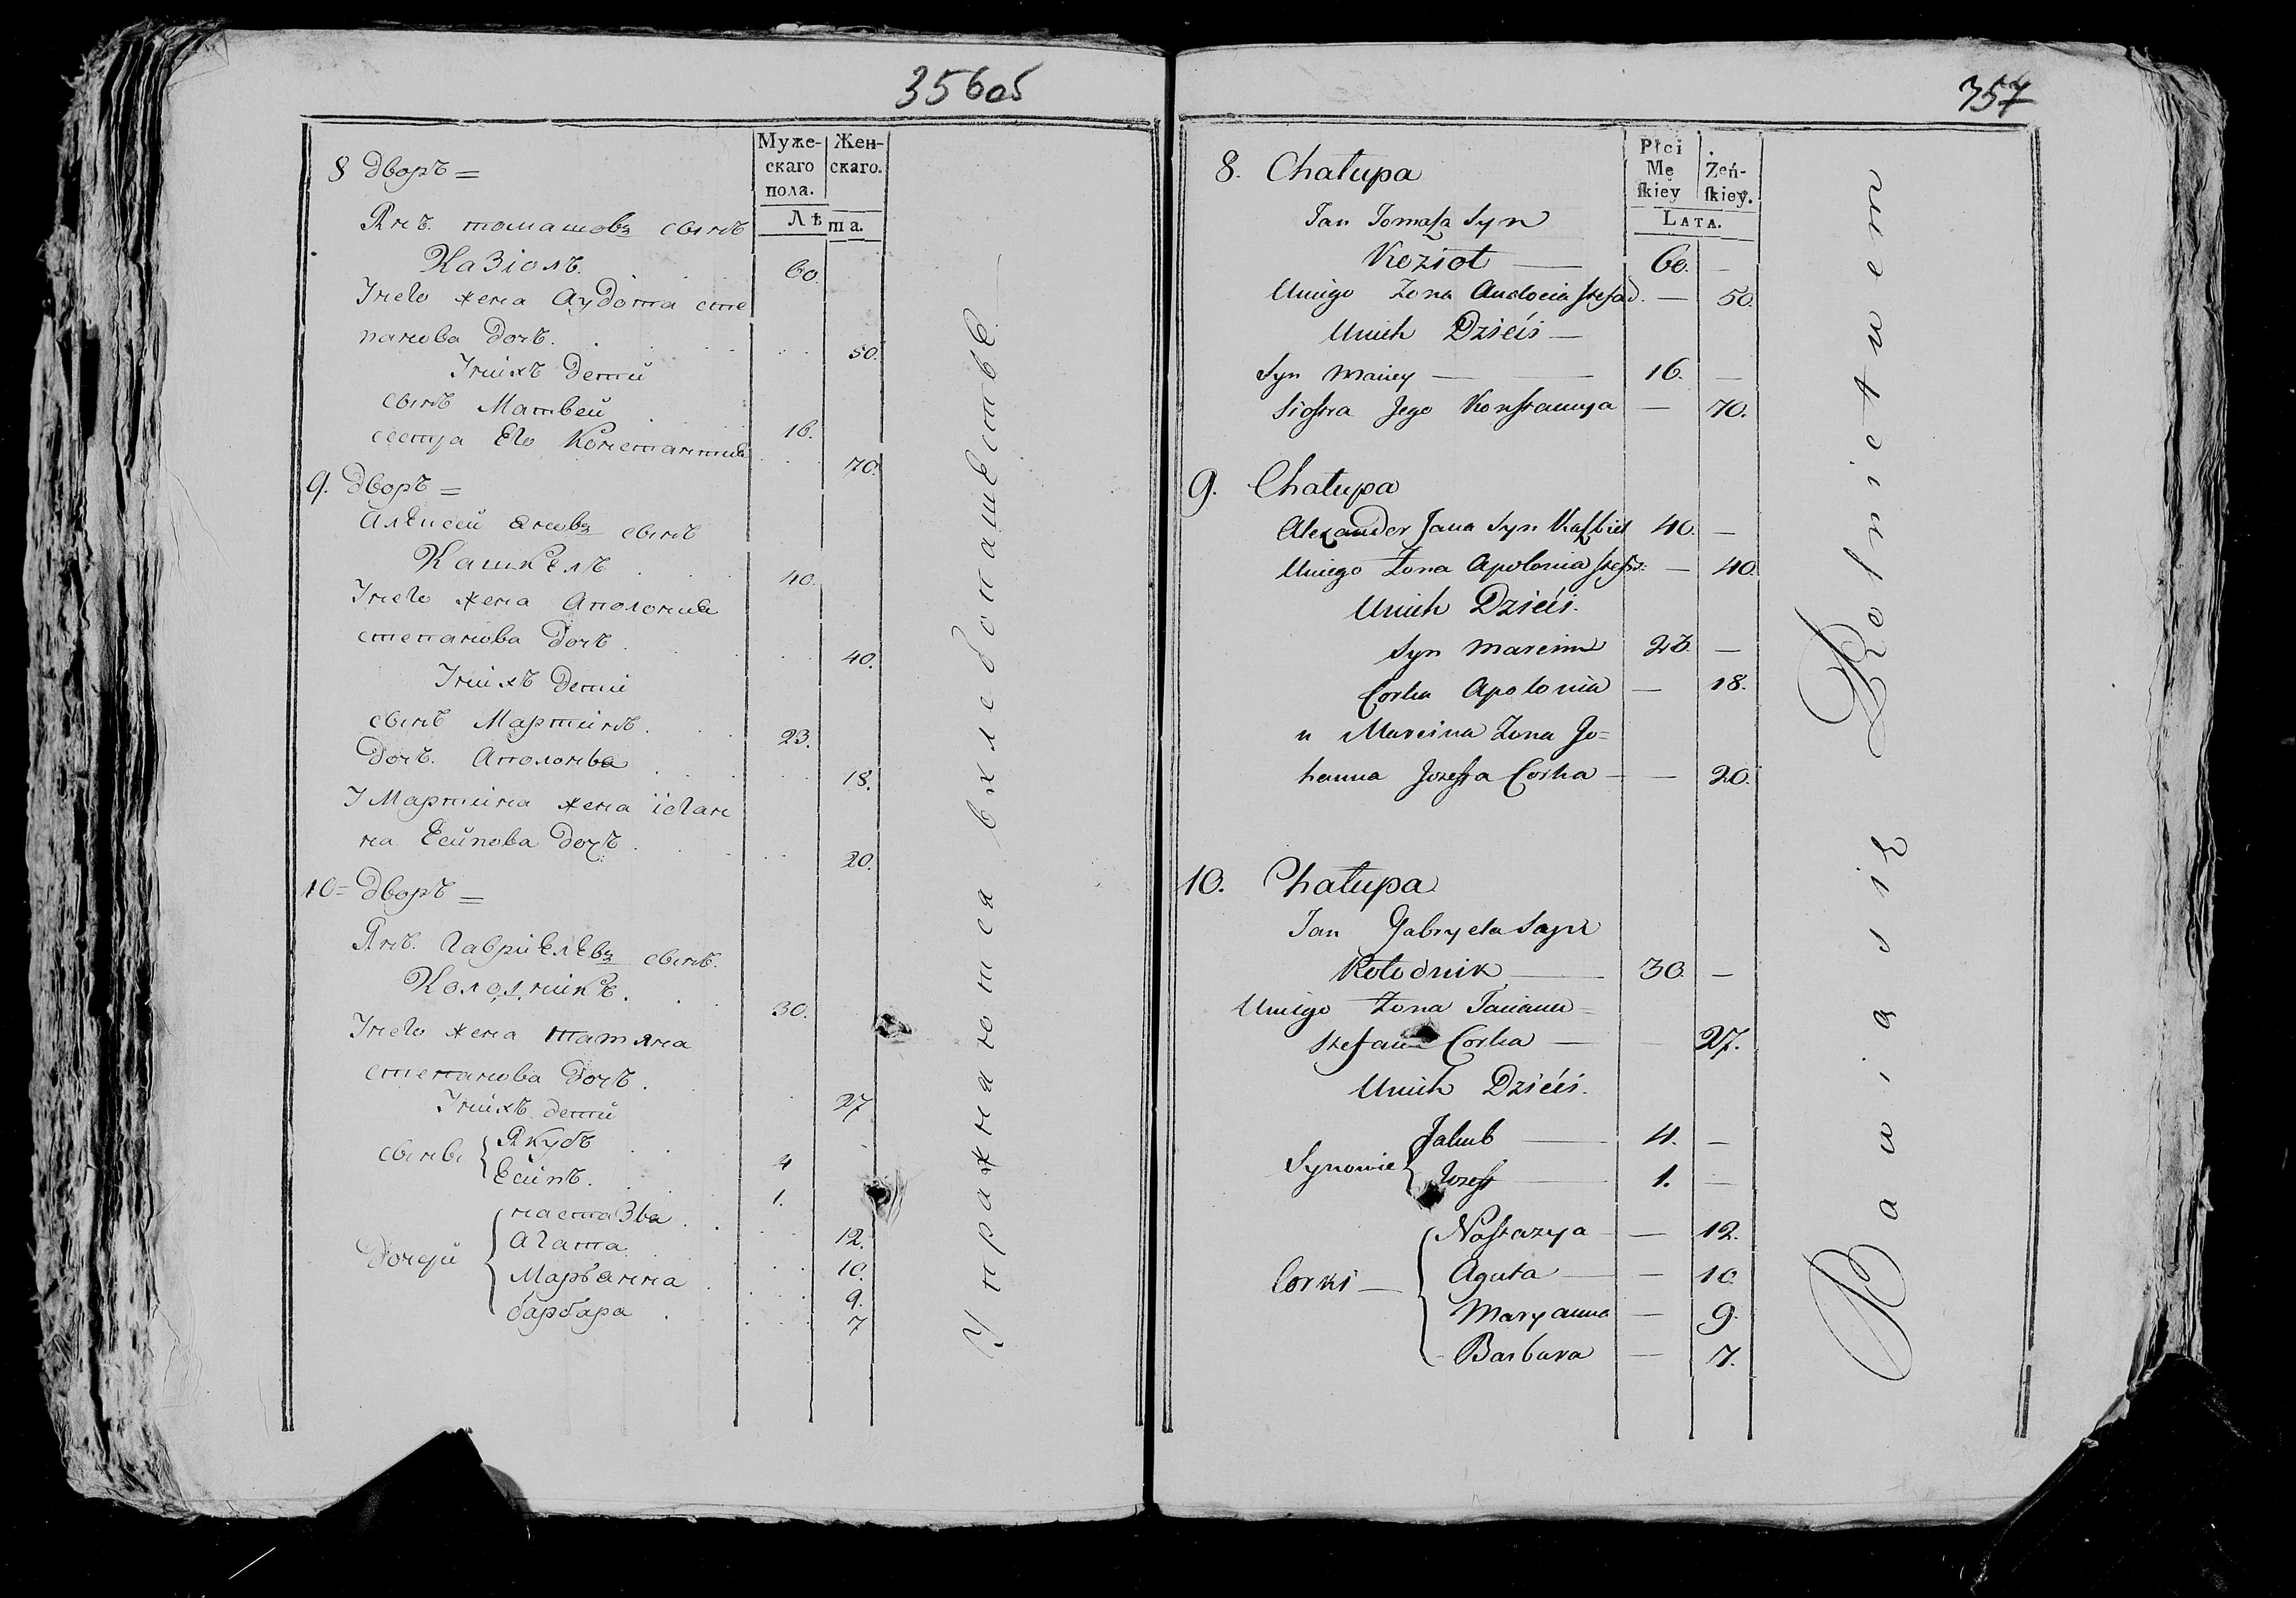 356об
Муже-
скаго
пола.
Жен-
скаго.
Лѣта.
8 дворъ =
Янъ томашовъ сынъ
Казіолъ. 60.
Унего жена Аудота сте
панова дочь. 50.
Унихъ дети
сынъ Матвей 16.
сестра Его Константина 70.
9. дворъ =
Алѣксей яновъ сынъ
Кашкѣлъ 40.
Унего жена Аполония
степанова дочь. 40.
Унихъ дети
сынъ Мартинъ. 23.
дочь. Аполония 18.
У Мартина жена іоган
на Есипова дочь. 20.
10 = дворъ =
Янъ. Гавриѣлѣвъ сынъ.
Колодникъ. 30.
Унего жена татяна
степанова дочь. 27
Унихъ дети
сыны
Якубъ 4
Есипъ. 1.
дочери
настазья 12.
Агата 10.
Марьянна 9.
барбара 7
Упражняются вхлебопашестве.
357
Płci
Mę
skiey
Żeń-
skiey.
LATA.
8. Chałupa
Jan Tomasza Syn
Kozioł — 60. —
Uniego Żona Audocia Stefad. — 50.
Unich Dzieci —
Syn Maciey — 16. —
Siostra Jego Konstancya — 70.
9. Chałupa
Alexander Jana Syn Kaszkiel 40. —
Uniego Żona Apolonia Stefa: — 40.
Unich Dzieci.
Syn Marcin 23. —
Corka Apolonia — 18.
u Marcina Żona Jo=
hanna Jozefa Corka — — 20.
10. Chałupa
Jan Gabryela Syn
Kołodnik — 30. —
Uniego Żona Taciana =
Stefana Corka — 27.
Unich Dzieci.
Synowie
Jakub — 4. —
Jozeff — 1. —
Corki —
Nastazya — 12.
Agata — 10
Maryanna — 9.
Barbara — 7.
Bawią się Rolnictwem